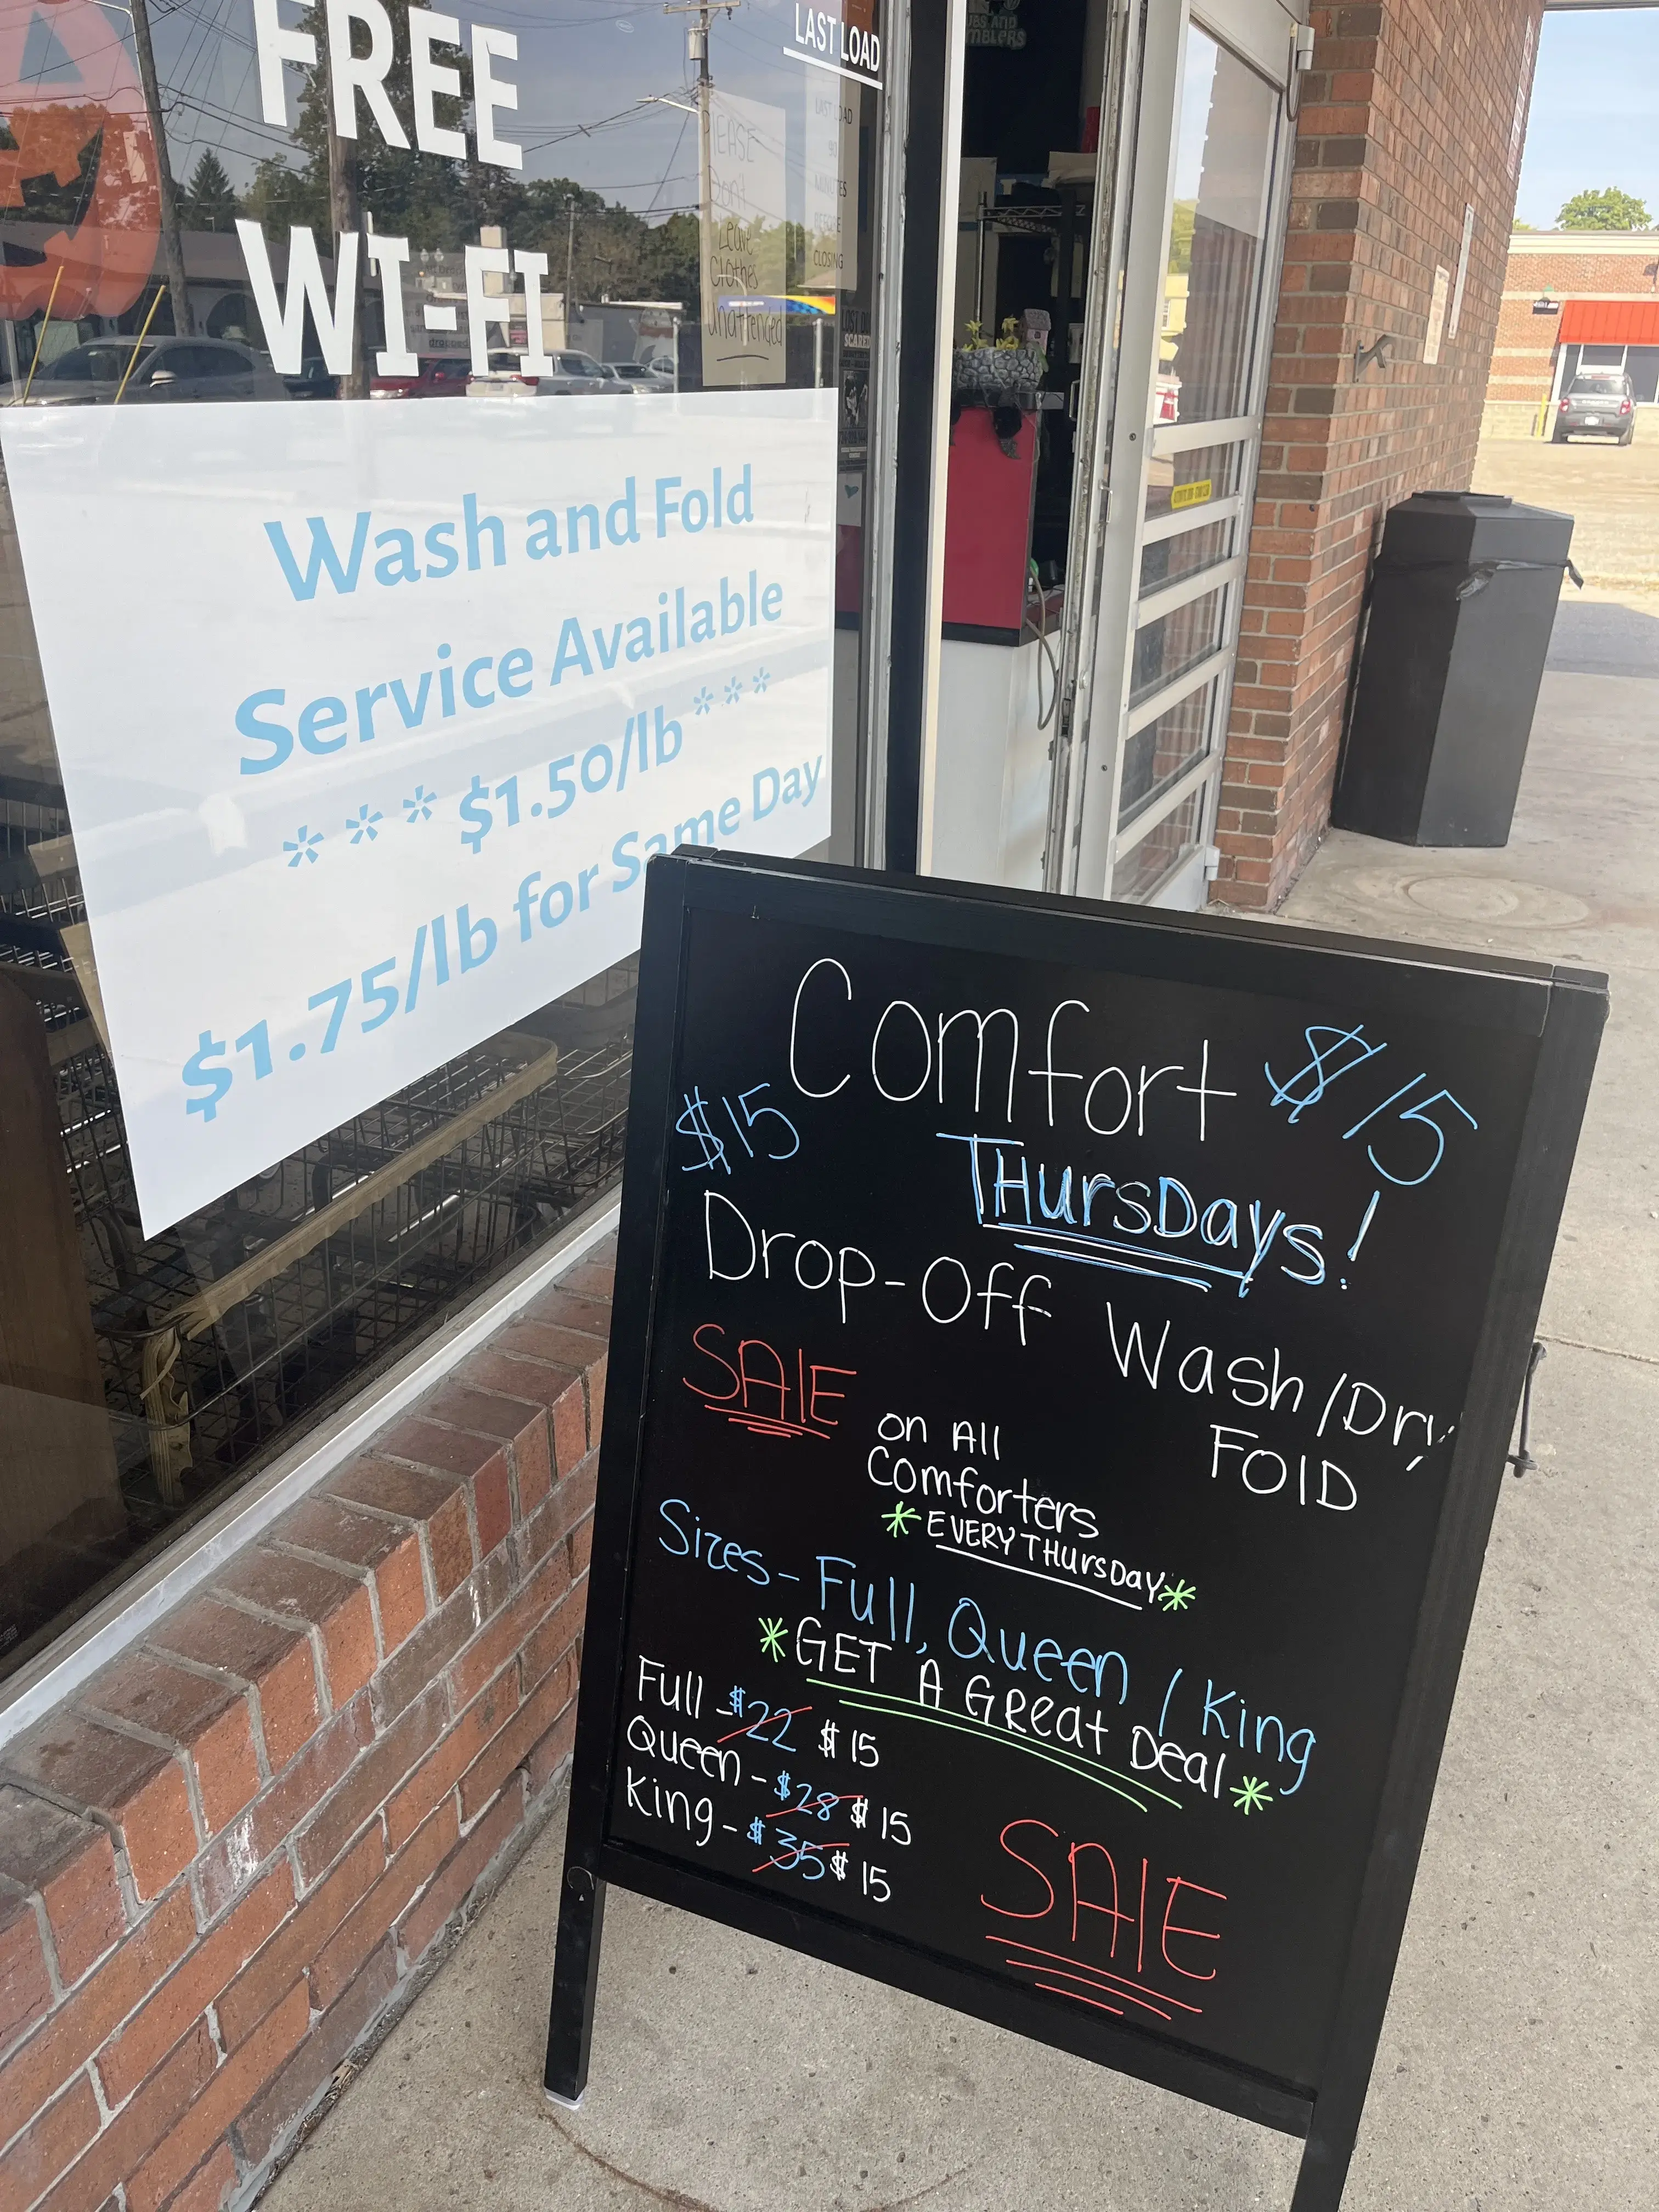 FREE
WI-FI
LAST LOAD
PLEASE
Don't
Leave
Clothes
unattended
LAST LOAD
90
MINUTES
BEFORE
CLOSING
Wash and Fold
Service Available
*** $1.50/lb ***
$1.75/lb for Same Day
Comfort $15
$15 THursDays!
Drop-Off Wash/Dry,
FOlD
SAlE on All
Comforters
*EVERY THursDAY*
Sizes- Full, Queen / King
*GET A GReat Deal*
Full - $22 $15
Queen - $28 $15
King - $35 $15
SAlE